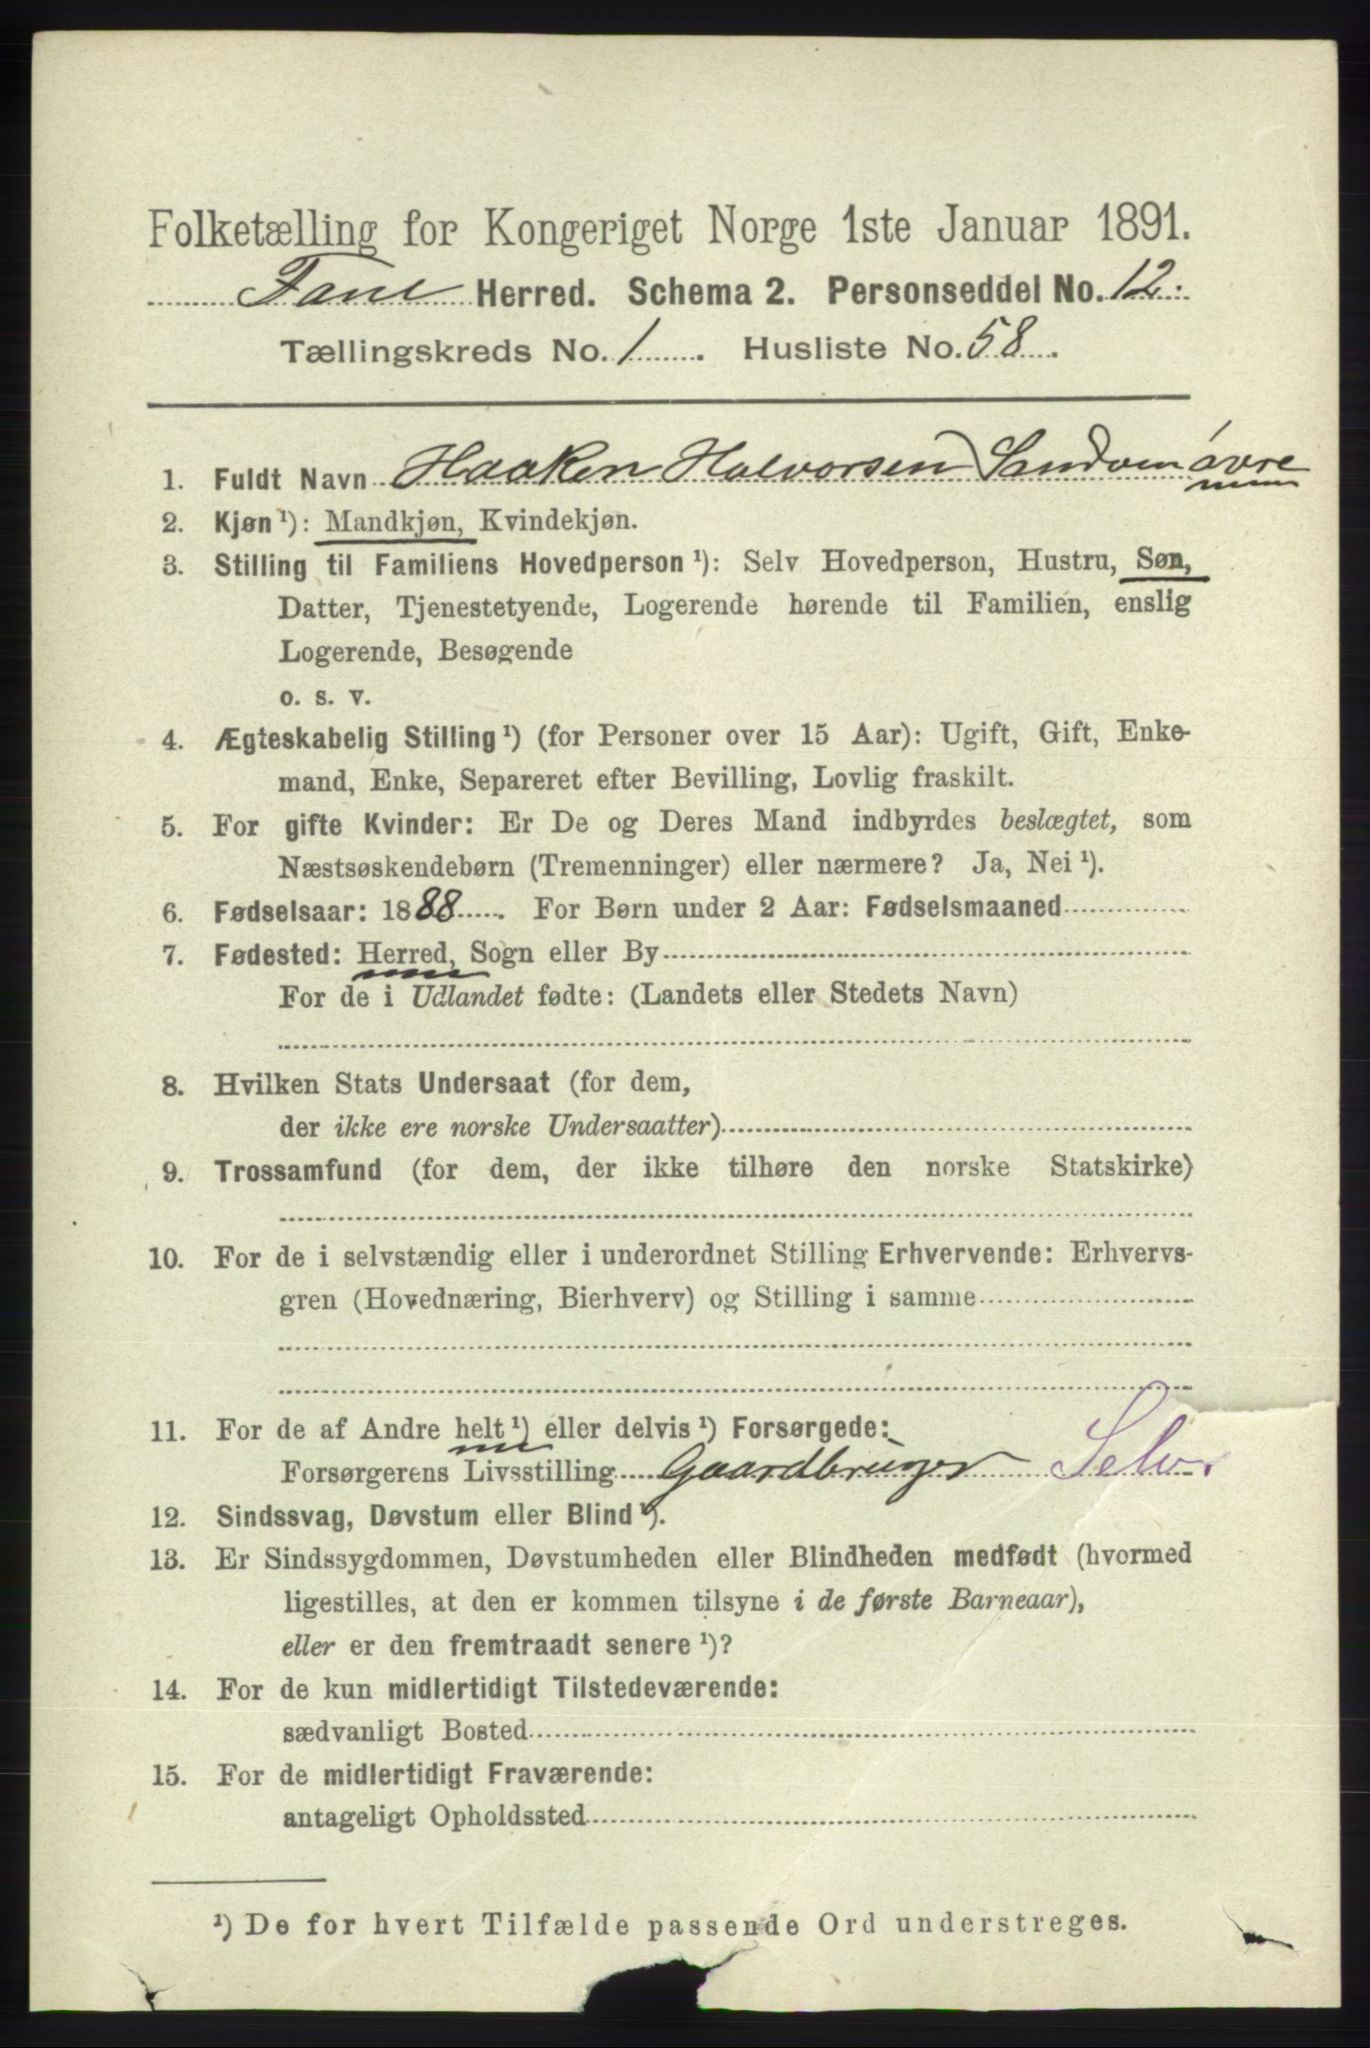 Folketælling for Kongeriget Norge 1ste Januar 1891.
Fane Herred. Schema 2. Personseddel No. 12.
Tællingskreds No. 1. Husliste No. 58.
1. Fuldt Navn Haaken Halvorsen Sandven øvre
2. Kjøn ¹): Mandkjøn, Kvindekjøn.
3. Stilling til Familiens Hovedperson ¹): Selv Hovedperson, Hustru, Søn,
Datter, Tjenestetyende, Logerende hørende til Familien, enslig
Logerende, Besøgende
o. s. v.
4. Ægteskabelig Stilling ¹) (for Personer over 15 Aar): Ugift, Gift, Enke-
mand, Enke, Separeret efter Bevilling, Lovlig fraskilt.
5. For gifte Kvinder: Er De og Deres Mand indbyrdes beslægtet, som
Næstsøskendebørn (Tremenninger) eller nærmere? Ja, Nei ¹).
6. Fødselsaar: 1888. For Børn under 2 Aar: Fødselsmaaned
7. Fødested: Herred, Sogn eller By
For de i Udlandet fødte: (Landets eller Stedets Navn)
8. Hvilken Stats Undersaat (for dem,
der ikke ere norske Undersaatter)
9. Trossamfund (for dem, der ikke tilhøre den norske Statskirke)
10. For de i selvstændig eller i underordnet Stilling Erhvervende: Erhvervs-
gren (Hovednæring, Bierhverv) og Stilling i samme
11. For de af Andre helt ¹) eller delvis ¹) Forsørgede:
Forsørgerens Livsstilling Gaardbruger Selv.
12. Sindssvag, Døvstum eller Blind ¹).
13. Er Sindssygdommen, Døvstumheden eller Blindheden medfødt (hvormed
ligestilles, at den er kommen tilsyne i de første Barneaar),
eller er den fremtraadt senere ¹)?
14. For de kun midlertidigt Tilstedeværende:
sædvanligt Bosted
15. For de midlertidigt Fraværende:
antageligt Opholdssted
¹) De for hvert Tilfælde passende Ord understreges.